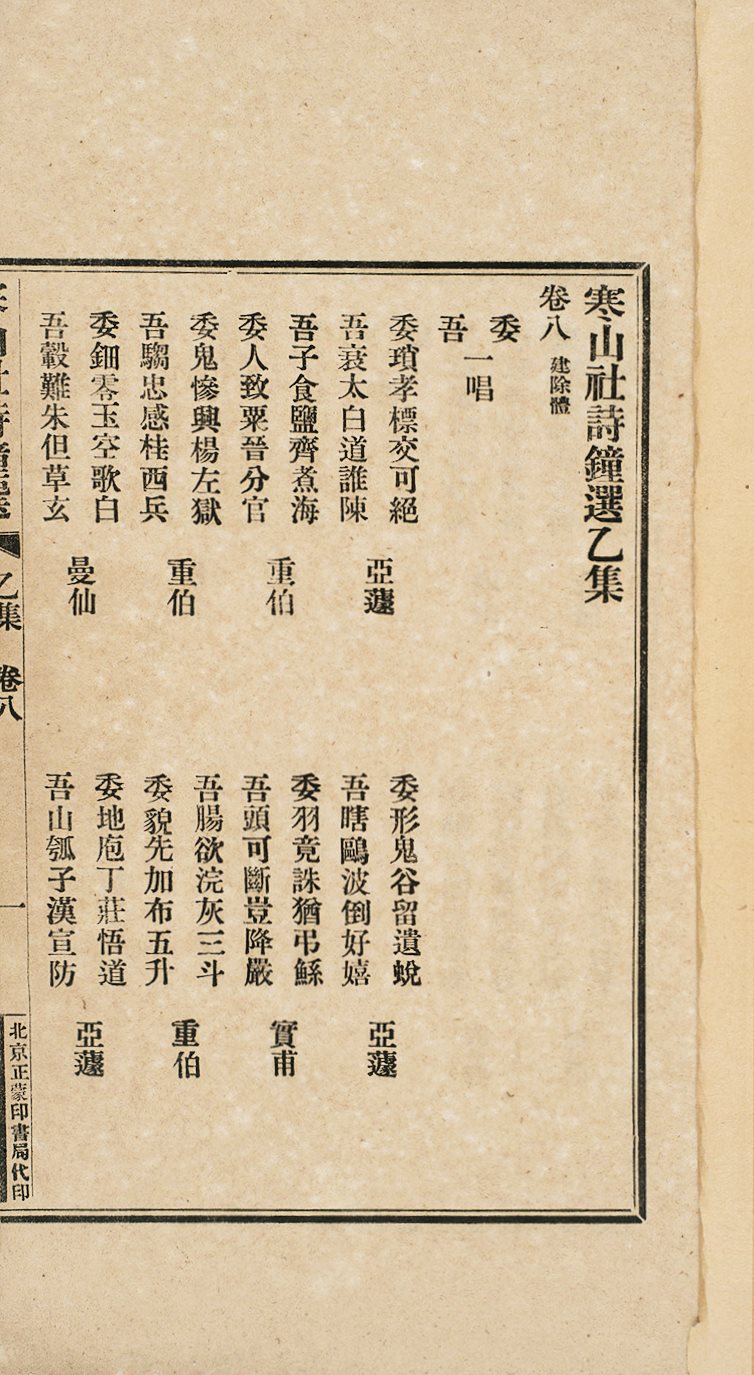 寒山社詩鐘選乙集
卷八 建除體
委
吾
一唱
委瑣孝標交可絕
吾衰太白道誰陳
亞蘧
委形鬼谷留遺蛻
吾瞎鷗波倒好嬉
亞蘧
吾子食鹽齊煮海
委人致粟晉分官
重伯
委羽竟誅猶弔鯀
吾頭可斷豈降嚴
實甫
委鬼慘興楊左獄
吾騶忠感桂西兵
重伯
吾腸欲浣灰三斗
委貌先加布五升
重伯
委鈿零玉空歌白
吾轂難朱但草玄
曼仙
委地庖丁莊悟道
吾山瓠子漢宣防
亞蘧
寒山社詩鐘選 乙集 卷八 一
北京正蒙印書局代印